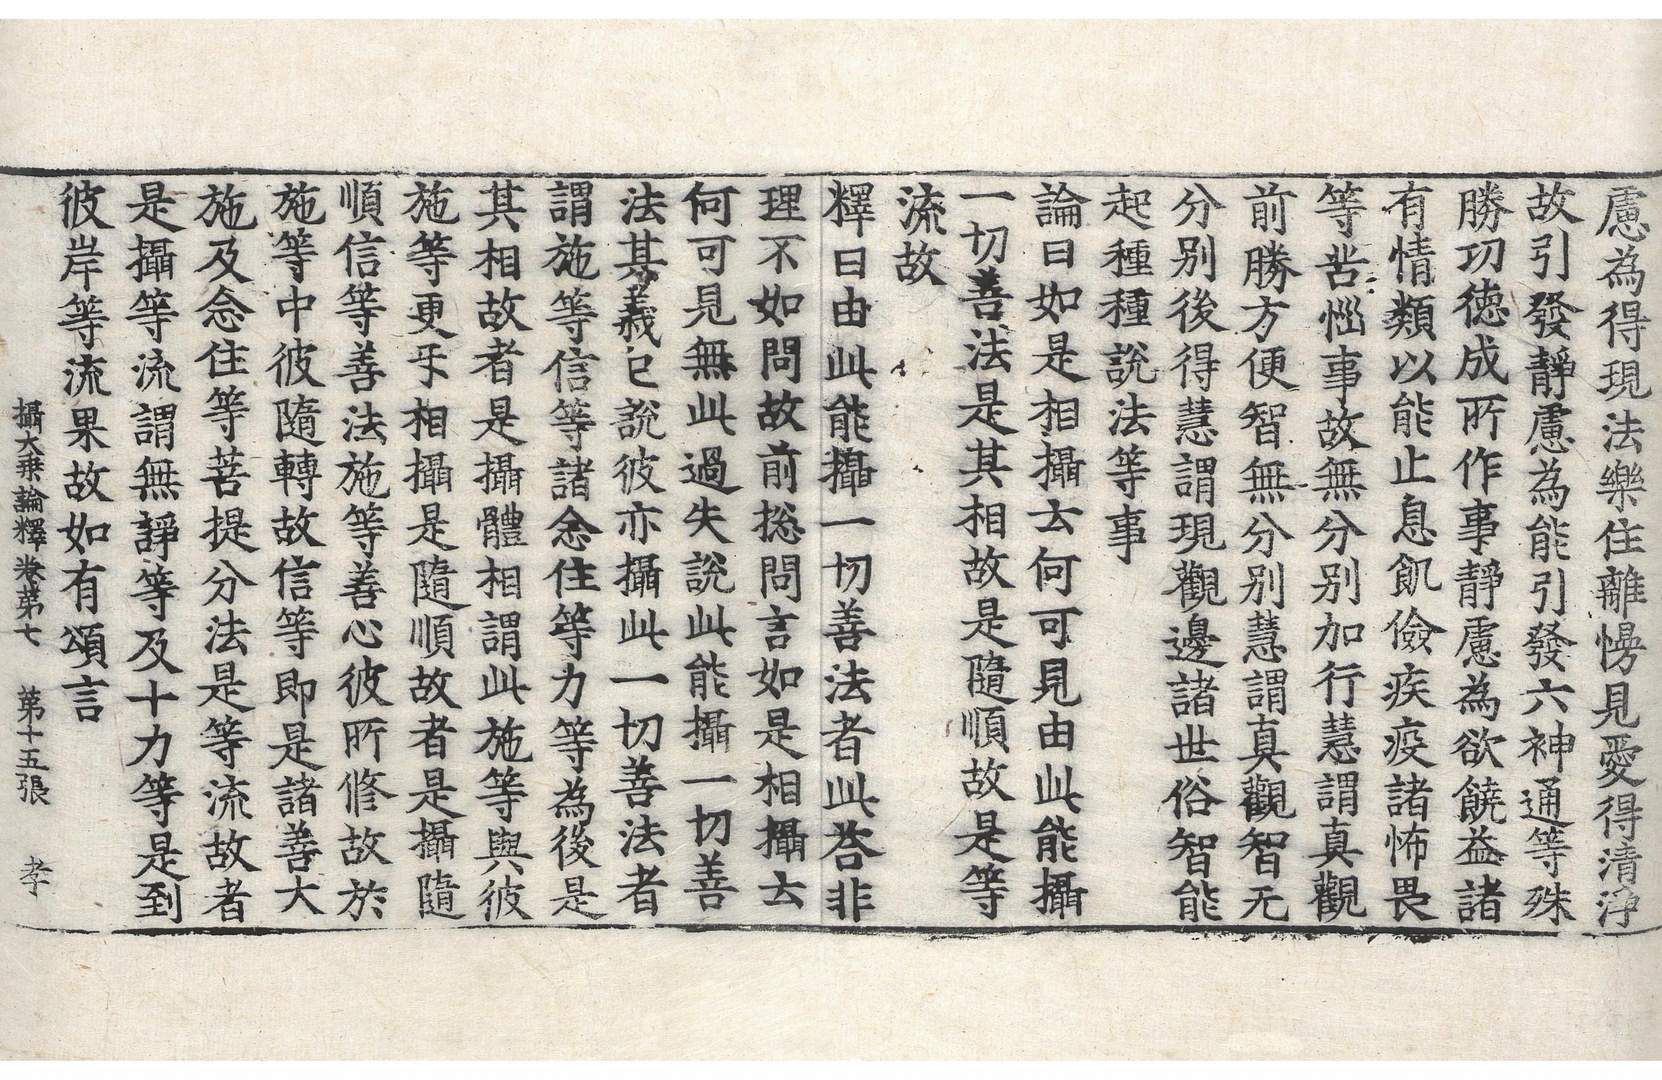 慮為得現法樂住離慢見愛得清淨
故引發靜慮為能引發六神通等殊
勝功德成所作事靜慮為欲饒益諸
有情類以能止息飢儉疾疫諸怖畏
等苦惱事故無分別加行慧謂真觀
前勝方便智無分別慧謂真觀智无
分别後得慧謂現觀邊諸世俗智能
起種種說法等事
論曰如是相攝云何可見由此能攝
一切善法是其相故是隨順故是等
流故
釋曰由此能攝一切善法者此荅非
理不如問故前捴問言如是相攝云
何可見無此過失說此能攝一切善
法其義已說彼亦攝此一切善法者
謂施等信等諸念住等力等為後是
其相故者是攝體相謂此施等與彼
施等更㸦相攝是隨順故者是攝隨
順信等善法施等善心彼所修故於
施等中彼隨轉故信等即是諸善大
施及念住等菩提分法是等流故者
是攝等流謂無諍等及十力等是到
彼岸等流果故如有頌言
攝大乗論釋卷第七　第十五張　孝